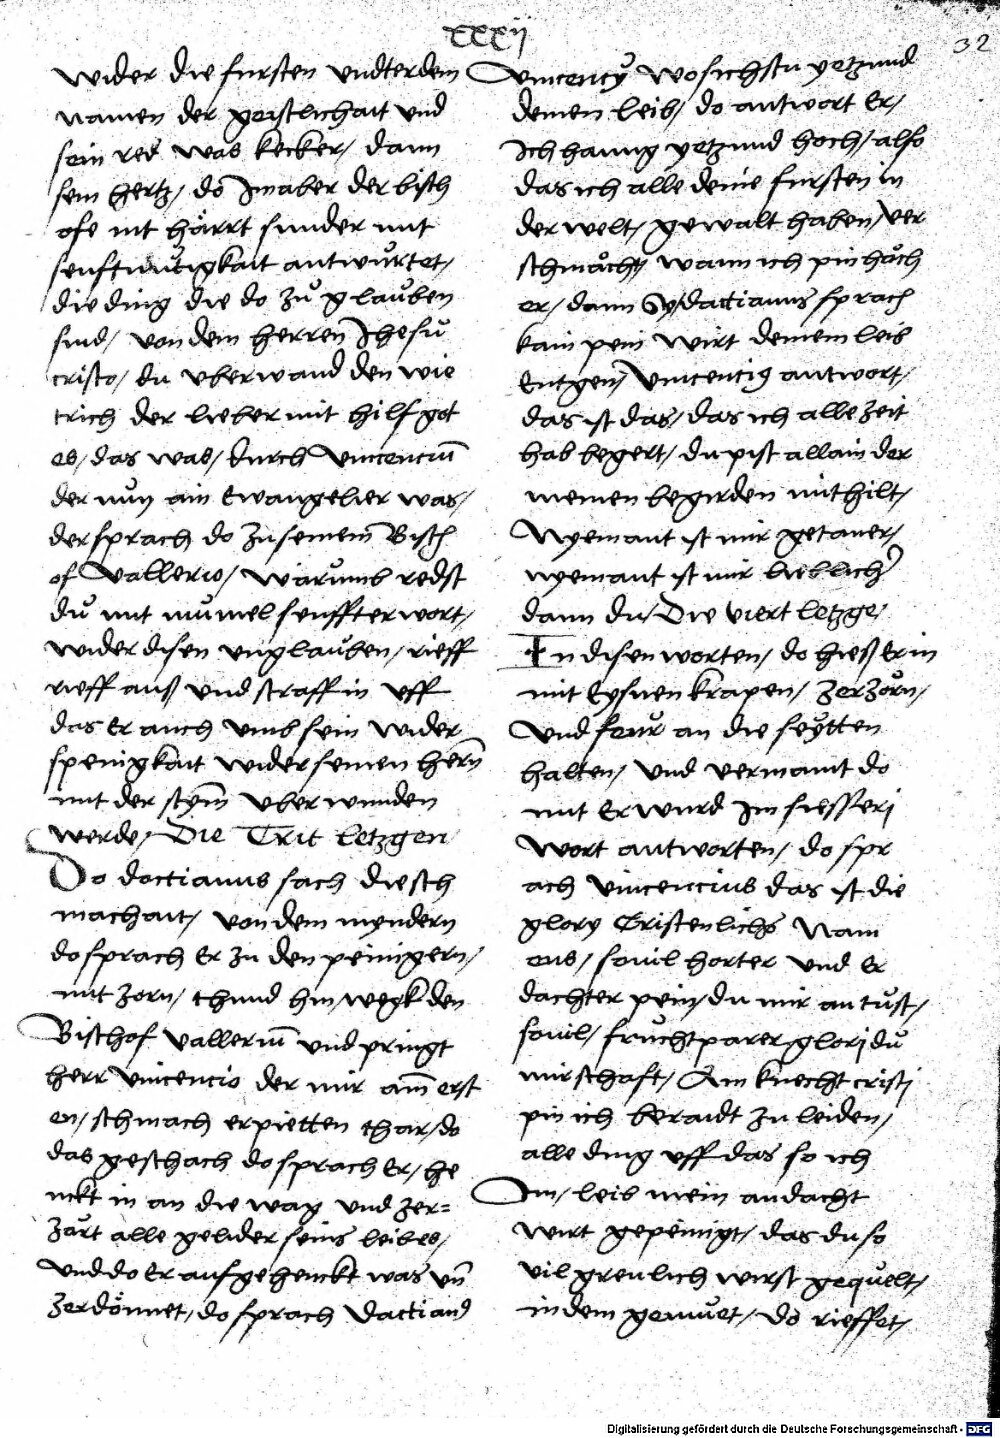 xxxij
32
wider die fursten vndterdem
namen der geistlichait vnd
sein red was kecker / dann
sein hertz / do Im aber der bisch
ofe nit hårrt sunder mit
senftmütigkait antwůrtet /
die ding die do zů glauben
sind / von dem herren Jhesů
cristo / du vberwand den wie
trich der lieber mit hilf got
es / das was / durch Vincenciū
der nůn ain Ewangelier was /
der sprach do zu seinem Bisch
of Vallerio / warumb redst
dů mit mumel senffter wort /
wider disen vnglauben / rieff
rieff auß vnd straff in vff
das Er auch vmb sein wider
spenigkait wider seinen herīn
mit der stym̄ vberwunden
werde / Die Trit letzgen
Do dactianus sach die sch
machait / von dem myndern
do sprach Er zu den peinigern /
mit zorn / thund hin / wegk den
Bischof Valleriū vnd pringt
herr Vincencio der mir am̄ erst
en / schmach erpietten thar / do
das geschach do sprach Er / he
nckt in an die wag vnd zer=
zårt alle gelider seins leibes /
vnd do Er aufgehenckt was vn̄
zerdönnet / do sprach Dactiand
Vincency wo sichstu yetzund
deinen leib / do antwort Er /
Ich hanng yetzund hoch / also
das ich alle deine fursten in
der welt / gewalt haben / ver
schmåch wann ich pin håch
er / dann Sy / dactianus sprach
kain pein wirt deinem leib
Entgen / Vincencig antwort /
das ist das / das ich alle zeit
hab begert / du pist allain der
meinen begirden mithilt /
Nyemant ist mir getaner /
nyemant ist mir lieblich
dann du / Die viert letzge /
In disen worten / do hieß Er in
mit Eysnen krapen / zerzörn /
vnd feur an die seytten
halten / vnd vermaint do
mit Er wurd Im susseri
wort antworten / do spr
ach Vincencius das ist die
glory Cristenlichs Nam
ens / souil horter vnd Er
dachter pein / du mir an tust /
souil / fruchtparer glori du
mir schaft / Ain knecht cristi
pin ich beraidt zu leiden /
alle ding vff das so ich
Im / leib mein andacht
wirt gepeinigt / das du so
vil greulich wirst gequelt /
in dem gemuet / do rieffet /
Digitalisierung gefördert durch die Deutsche Forschungsgemeinschaft - DFG